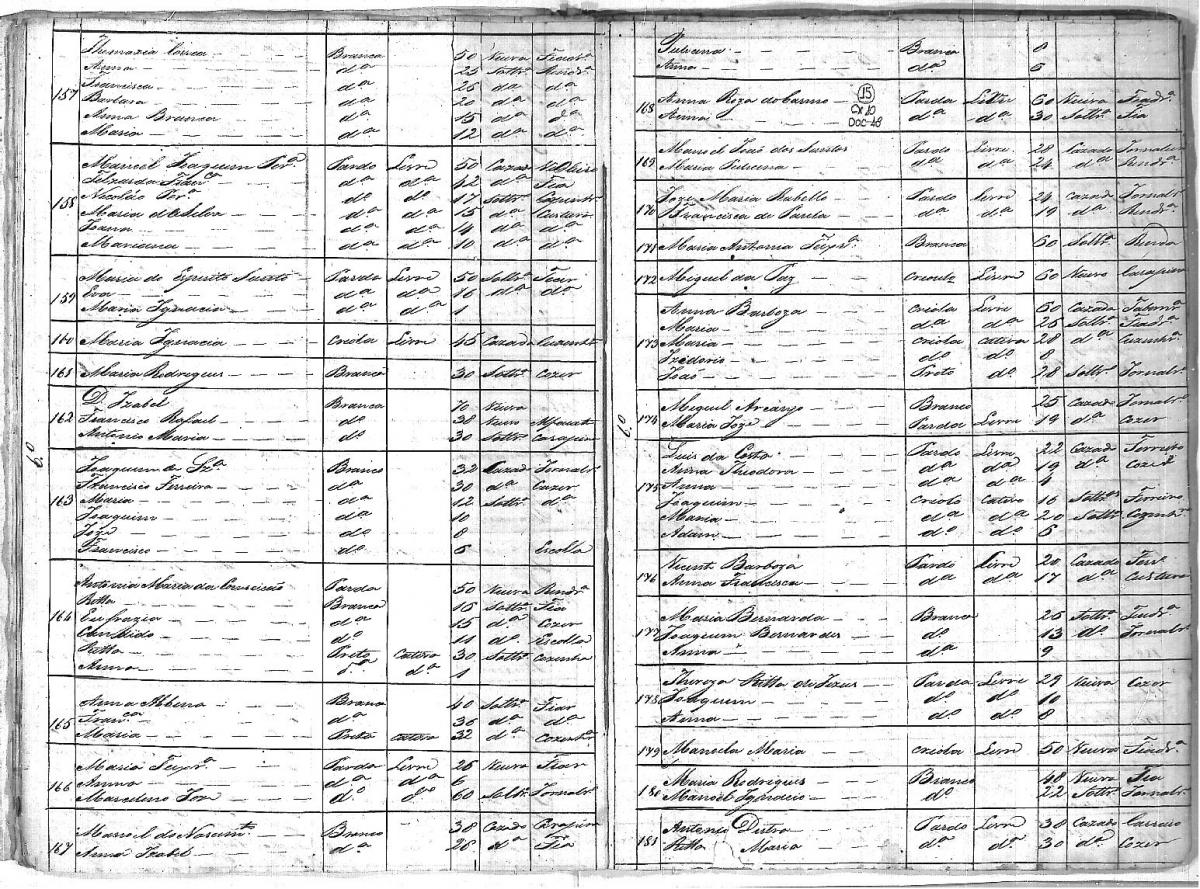 Branca 50 Fiad.ª
Anna dª 25 Solt.ª
157 Francisca dª 26 dª dª
Barbara dª 20 dª dª
Anna Branca dª 15 dª dª
Maria dª 12 dª dª
Manoel Joaquim Per.ª Pardo Livre 50 Cazado
dª dª 42 dª Fia
158 Nicoláo Per.ª d.º d.º 17 Solt.º
Maria dª dª 15 dª Costura
dª dª 14 dª dª
Marianna dª dª 10 dª dª
Maria do Espirito Santo Parda Livre 50 Solt.ª Fiar
159 Eva dª dª 16 dª dª
Maria Ignacia dª dª 1
160 Maria Ignacia Criola Livre 45 Cazada
161 Maria Rodrigues Branca 30 Solt.ª Cozer
D. Izabel Branca 70 Viuva
162 Francisco Rafael d.º 38 Viuvo Alfaiate
Antonio Maria d.º 30 Solt.º Carapina
Joaquim de Sz.ª Branco 32 Cazad Jornalr.º
Francisca Ferreira dª 30 dª Cozer
163 Maria dª 12 Solt.ª dª
Joaquim dª 10
Joze d.º 8
Francisco d.º 5 Escolla
Antonia Maria da Conceicaõ Parda 50 Viuva Rend.ª
Ritta Branca 16 Solt.ª Fia
164 Eufrazia dª 15 dª Cozer
Candido d.º 11 d.º Escolla
Ritta Preta Cativa 30 Solt.ª Cozinha
Anna dª 1
Anna Branca 40 Solt.ª Fiar
165 Fran.ca dª 36 dª dª
Maria Preta Cativa 32 dª Cozinh.ª
Maria Teix.ª Parda Livre 26 Viuva Fiar
166 Anna dª dª 6
Marcelino Joze d.º d.º 60 Solt.º Jornalr.º
Manoel do Nascim.to Branco 38 Cazado Carapina
167 Anna Izabel dª 28 dª Fia
Branca 8
Anna dª 5
15
Cx 10
Doc-18
168 Anna Roza do Carmo Parda Livre 60 Viuva Fiad.ª
Anna dª dª 30 Solt.ª Fia
169 Manoel Joaõ dos Santos Pardo Livre 28 Cazado Jornaleiro
Maria dª dª 24 dª Rend.ª
170 Joze Maria Rabello Pardo Livre 24 Cazad Jornalr.º
Francisca de Paula dª dª 19 dª Rend.ª
171 Maria Antonia Teix.ª Branca 60 Solt.ª Renda
172 Miguel da Paz Crioulo Livre 60 Viuvo Carapina
Anna Barboza Criola Livre 50 Cazada
Maria dª dª 26 Solt.ª Fiad.ª
173 Maria Criola Cativa 28 dª
Izidorio d.º d.º 8
Joaõ Preto d.º 28 Solt.º Jornalr.º
174 Miguel Arcanjo Branco 25 Cazado Jornalr.º
Maria Joze Parda Livre 19 dª Cozer
Luis da Costa Pardo Livre 22 Cazad Ferreiro
Anna Theodora dª dª 19 dª Cozer
175 Anna dª dª 4
Joaquim Criolo Cativo 16 Solt.º Ferreiro
Maria dª dª 20 Solt.ª Cozinh.ª
Adam d.º d.º 6
176 Vicente Barboza Pardo Livre 20 Cazado
Anna Francisca dª dª 17 dª Costura
Maria Bernarda Branca 26 Solt.ª Fiad.ª
177 Joaquim Bernardes d.º 13 d.º Jornalr.º
Anna dª 9
Thereza Ritta de Jezus Parda Livre 29 Viuva Cozer
178 Joaquim d.º d.º 10
Anna d.º d.º 8
179 Manoela Maria Criola Livre 50 Viuva Fiad.ª
Maria Rodrigues Branca 48 Viuva Fia
180 Manoel Ignacio d.º 22 Solt.º Jornalr.º
181 Antonio Dutra Pardo Livre 38 Cazado
Ritta Maria dª dª 30 dª Cozer